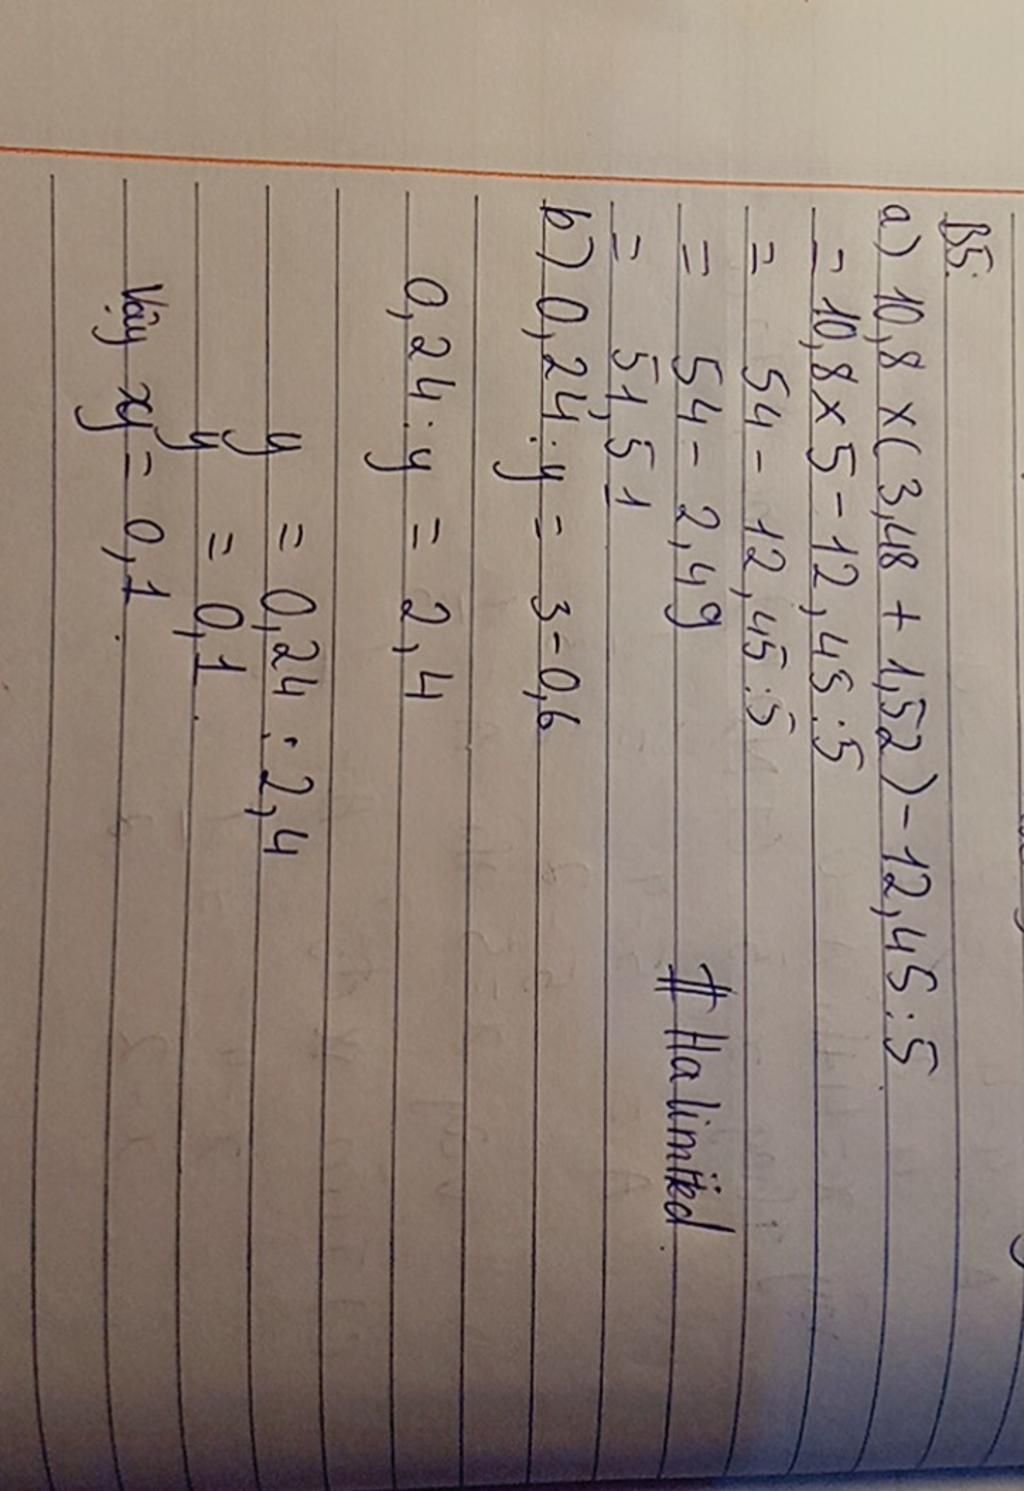 B5.
a) 10,8 x ( 3,48 + 1,52 ) - 12,45 : 5
= 10,8 x 5 - 12,45 : 5
= 54 - 12,45 : 5
= 54 - 2,49
= 51,51
# Halimited.
b) 0,24 : y = 3 - 0,6
0,24 : y = 2,4
y = 0,24 : 2,4
y = 0,1.
Vậy y = 0,1.